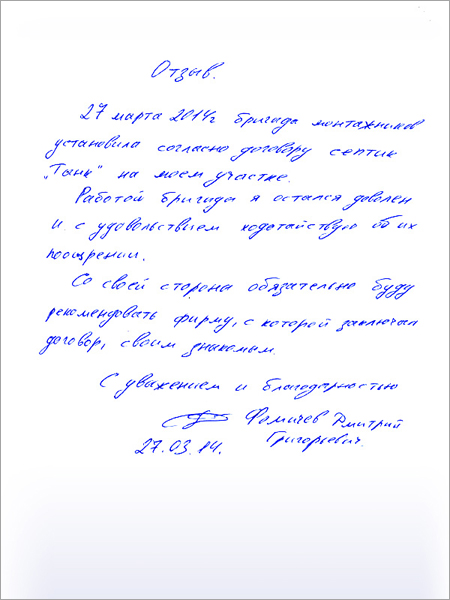 Отзыв.
27 марта 2014г бригада монтажников
установила согласно договору септик
„Танк" на моем участке.
Работой бригады я остался доволен
и с удовольствием ходотайствую об их
поощрении.
Со своей стороны обязательно буду
рекомендовать фирму, с которой заключал
договор, своим знакомым.
С уважением и благодарностью
Фомичев Дмитрий
Григорьевич.
27.03.14.